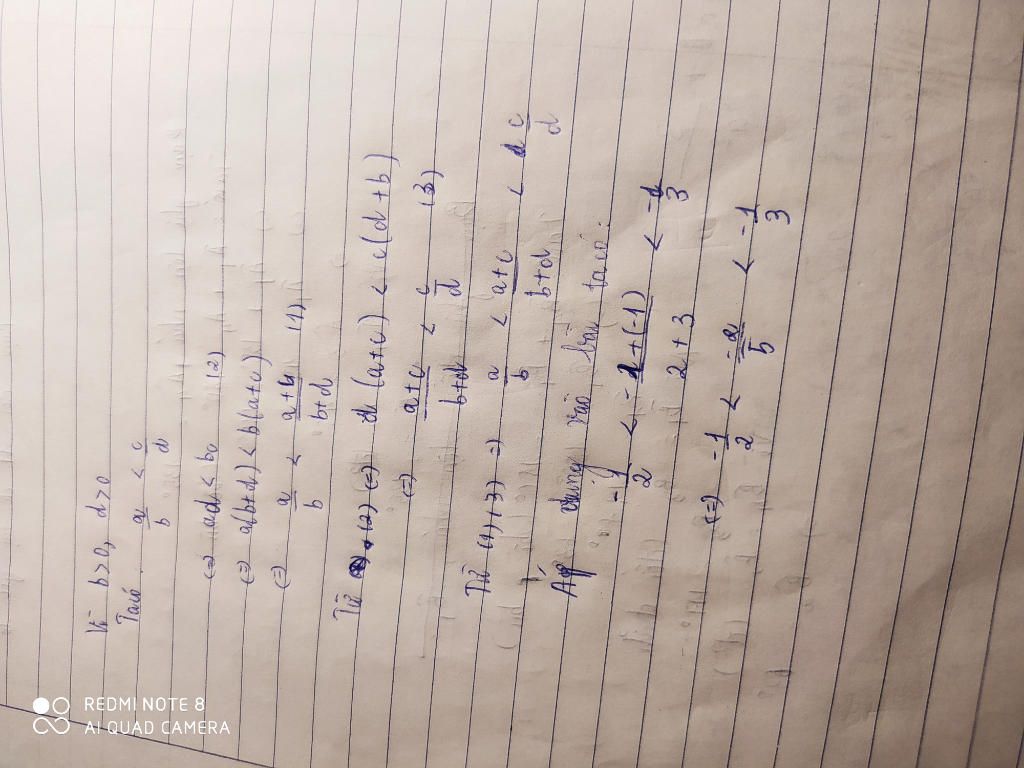 Vì b>0, d>0
Ta có a/b < c/d
(=) ad < bc (2)
(=) a(b+d) < b(a+c)
(=) a/b < a+c/b+d (1)
Từ (2) (=) d(a+c) < c(d+b)
(=) a+c/b+d < c/d (3)
Từ (1), (3) =) a/b < a+c/b+d < c/d
Áp dụng vào bài ta có:
-1/2 < -1+(-1)/2+3 < -1/3
(=) -1/2 < -2/5 < -1/3
REDMI NOTE 8
AI QUAD CAMERA